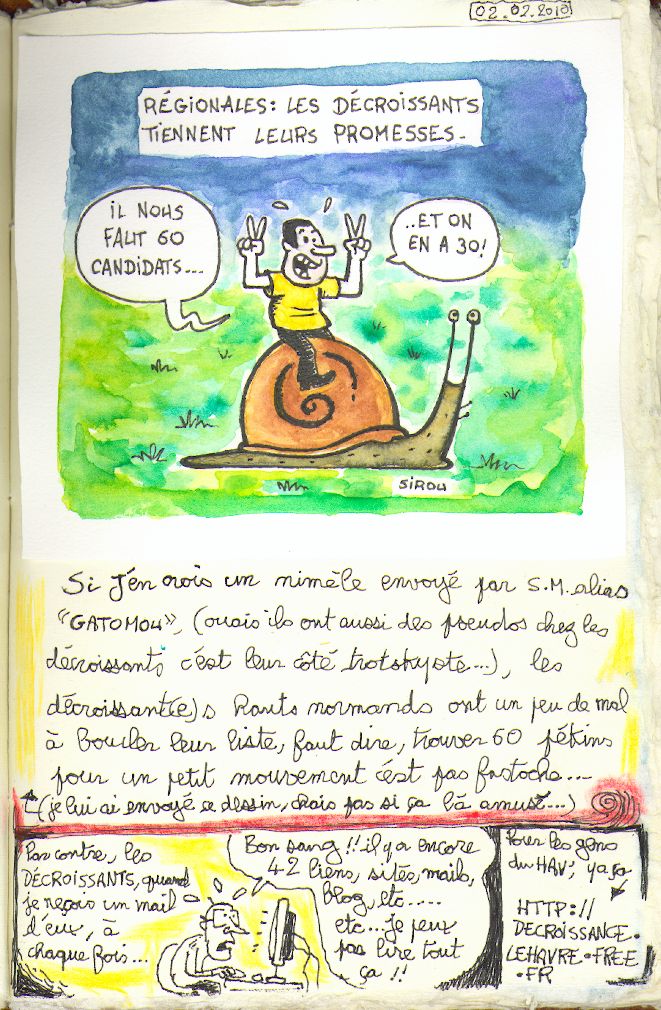 02.02.2010
RÉGIONALES: LES DÉCROISSANTS
TIENNENT LEURS PROMESSES_
iL NOUS
FAUT 60
CANDIDATS...
..ET ON
EN A 30!
SIROU
Si j'en crois un nimèle envoyé par S.M. alias
"GATOMOU", (ouais ils ont aussi des pseudos chez les
décroissants c'est leur côté trotskyste...), les
décroissant(e)s Hauts normands ont un peu de mal
à boucler leur liste, faut dire, trouver 60 pékins
pour un petit mouvement c'est pas fastoche...
(je lui ai envoyé ce dessin, chais pas si ça l'a amusé...)
Par contre, les
DÉCROISSANTS, quand
je reçois un mail
d'eux, à
chaque fois...
Bon sang!! il y a encore
42 liens, sites, mails,
blog, etc.....
etc... je peux
pas lire tout
ça !!
Pour les gens
du HAV', ya ça
HTTP://
DECROISSANCE.
LEHAVRE.FREE
.FR